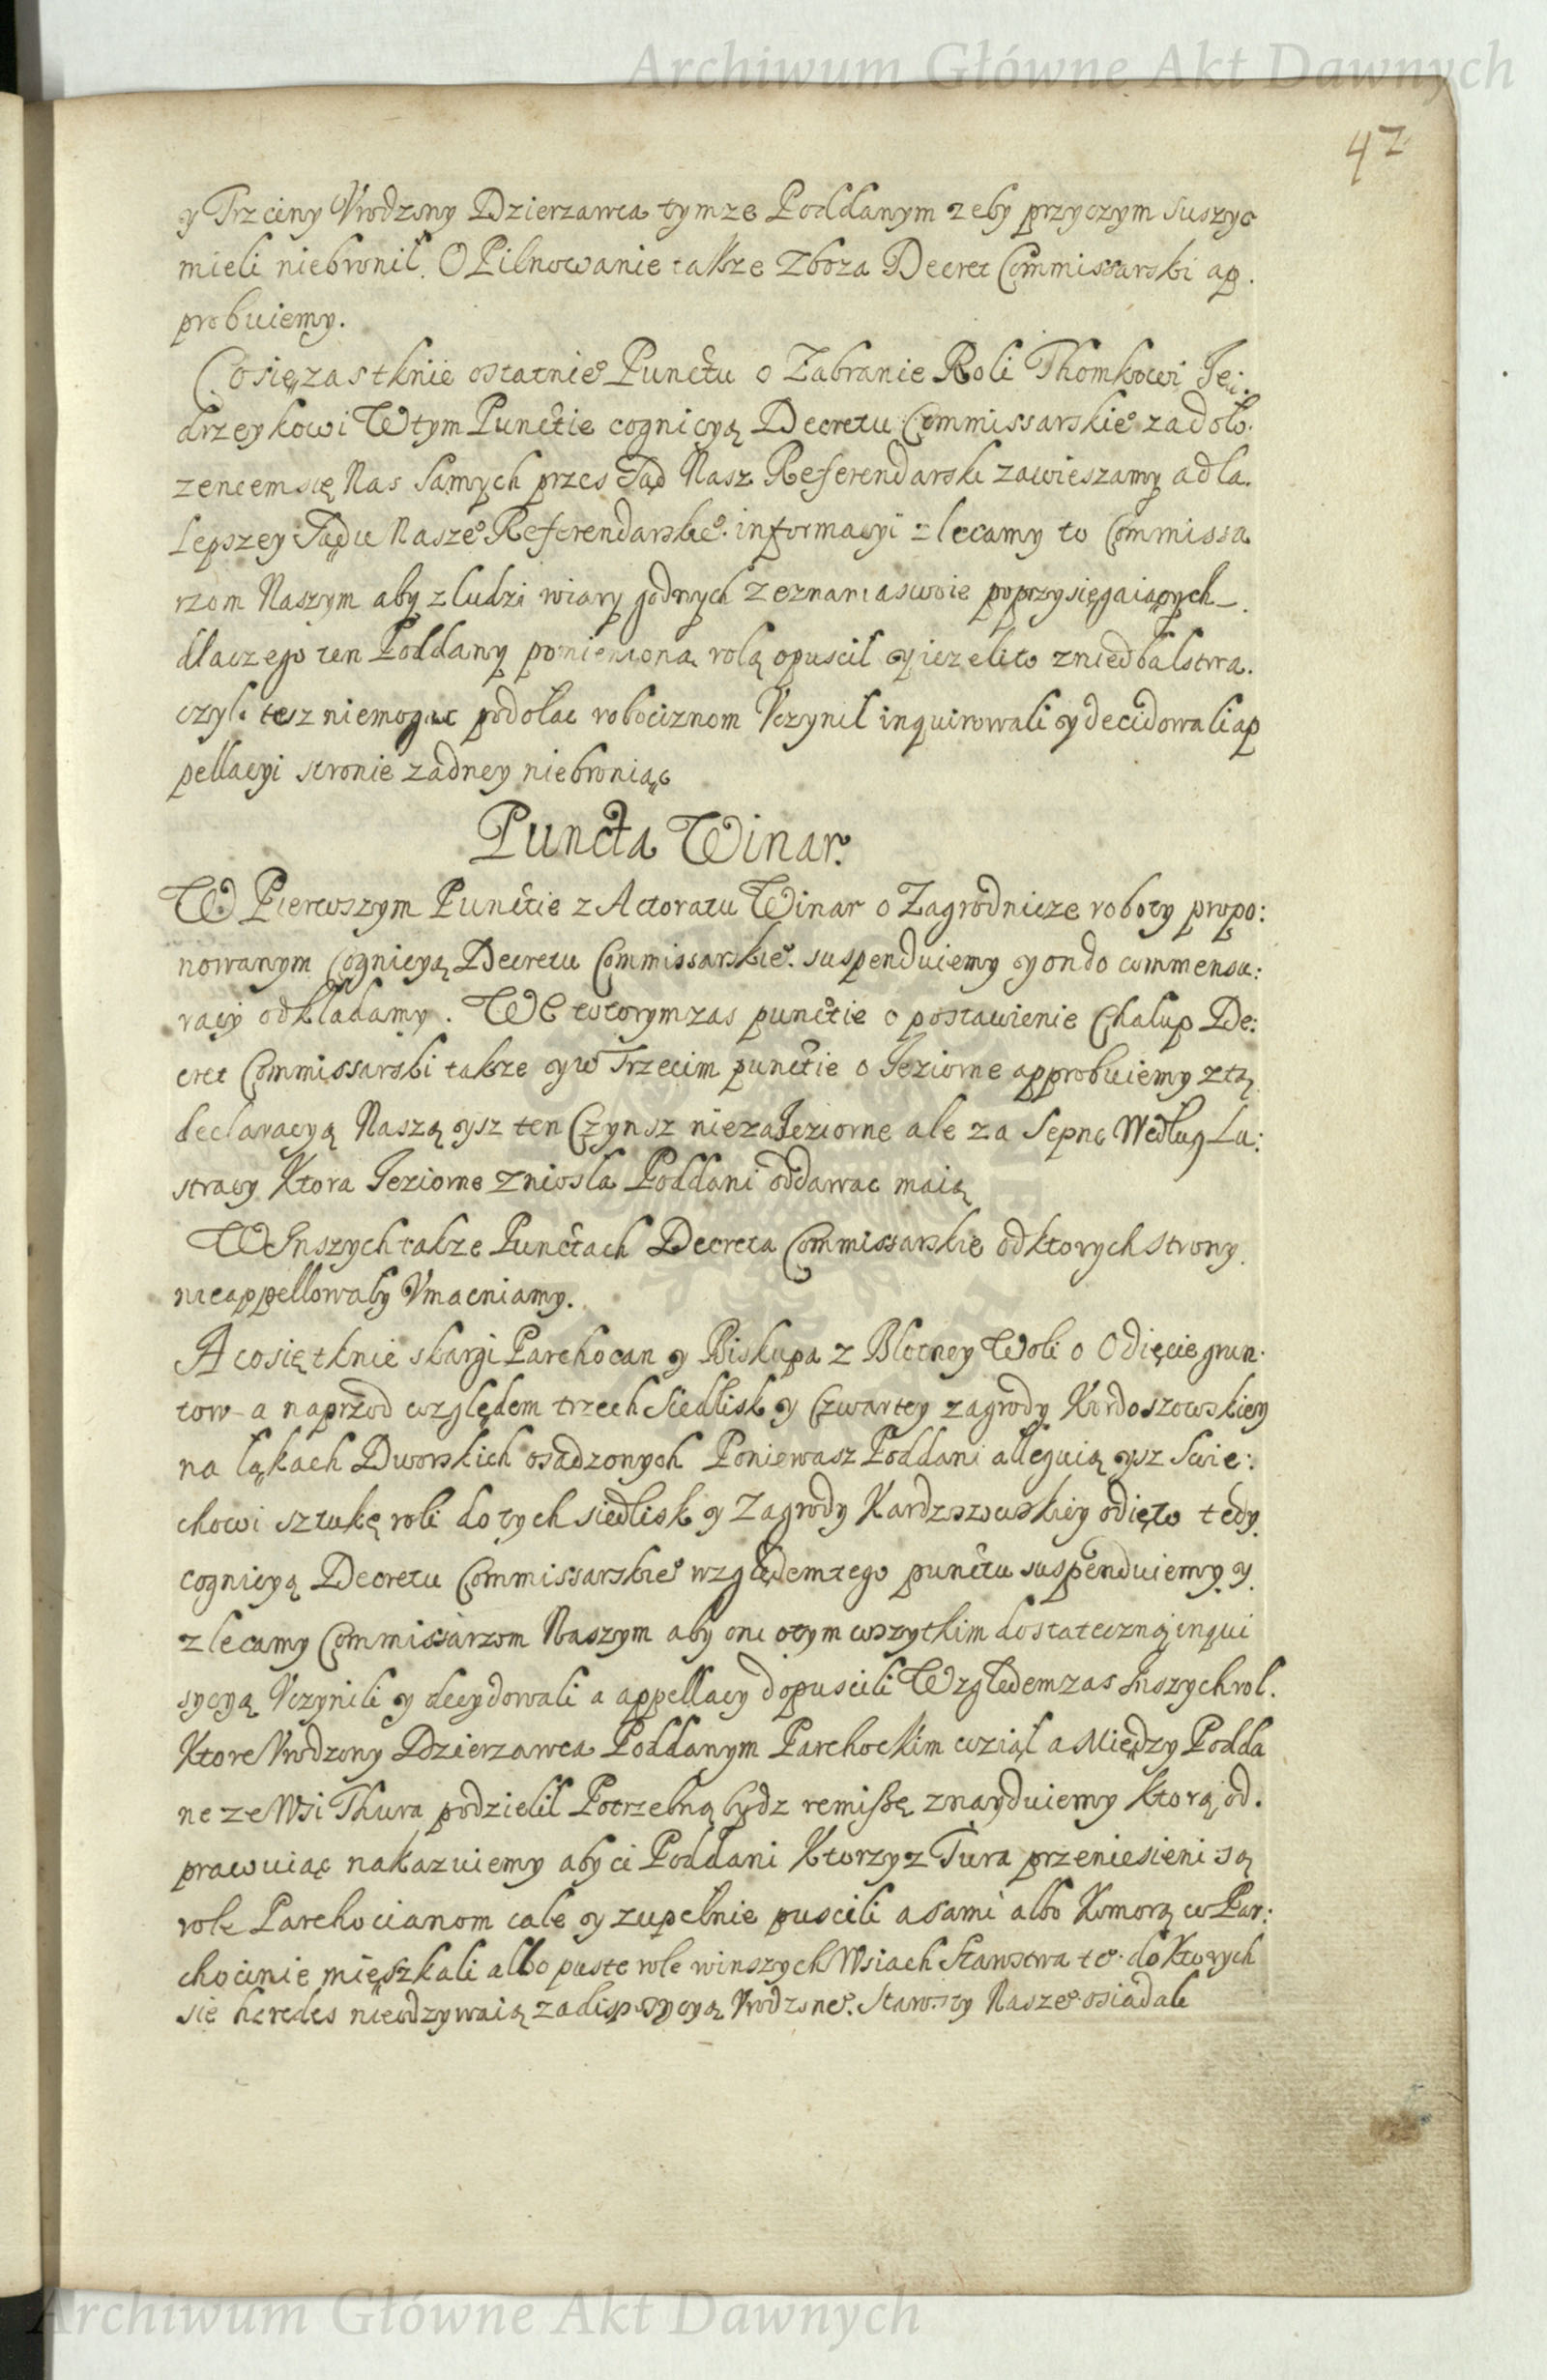 Archiwum Główne Akt Dawnych
42
y Trzciny Vrodzony Dzierzawca tymze Poddanym zeby przyczym suszyc
mieli niebronił. O Pilnowanie takze Zboza Decret Commissarski ap
probuiemy.
Co się zas tknie ostatnieº Punctu o Zabranie Roli Thomkowi Ję
drzeykowi W tym Punctie cognicyą Decretu Commissarskieº za doło.
zeniem się Nas Samych przes Sąd Nasz Referendarski zawieszamy a dla
Lepszey Sądu Naszeº Referendarskieº informacyi zlecamy to Commissa
rzom Naszym aby z ludzi wiary godnych zeznania swoie poprzysięgaiących
dlaczego ten Poddany pomieniona rolą opuscil y iezeli to z niedbalstwa
czyli tesz niemogąc podołac robociznom Vczynil inquirowali y decidowali ap
pellacyi stronie zadney niebroniąc
Puncta Winar.
W Pierwszym Punctie z Actoratu Winar o Zagrodnicze roboty propo:
nowanym Cognicyą Decretu Commissarskieº suspenduiemy y on do commensu:
racyi odkładamy. W Wtorym zas punctie o postawienie Chalup De:
cret Commissarski takze y w Trzecim punctie o Jeziorne approbuiemy z tą
declaracyą Naszą ysz ten Czynsz nie za Jeziorne ale za Sepne Według Lu:
stracyi Ktora Jeziorne zniosla Poddani oddawac maią
W Inszych takze Punctach Decreta Commissarskie od ktorych strony
nieappellowały Vmacniamy.
A co się tknie skargi Parchocan y Biskupa z Błotney Woli o Odięcie grun.
tow a naprzod względem trzech Siedlisk y Czwartey zagrody Kordoszowskiey
na łąkach Dworskich osadzonych Poniewasz Poddani alleguią ysz Swie:
chowi sztukę roli do tych siedlisk y Zagrody Kardoszowskiey odięto tedy
cognicyą Decretu Commissarskieº względem tego punctu suspenduiemy y
zlecamy Commissarzom Naszym aby oni o tym wszytkim dostateczną inqui
sycyą Vczynili y decydowali a appellacyi dopuscili Względem zas Inszych rol.
Ktore Vrodzony Dzierzawca Poddanym Parchockim wziął a Między Podda
ne ze Wsi Thura podzielil Potrzebną bydz remissę znayduiemy ktorą od.
prawuiąc nakazuiemy aby ci Poddani Ktorzy z Tura przeniesieni są
role Parchocianom cale y zupełnie puscili a sami albo Komorą w Par:
chocinie mięszkali albo puste role w inszych Wsiach Starostwa teº do Ktorych
się heredes nieodzywaią za dispozycyą Vrodzoneº Starosty Naszeº osiadali
Archiwum Główne Akt Dawnych